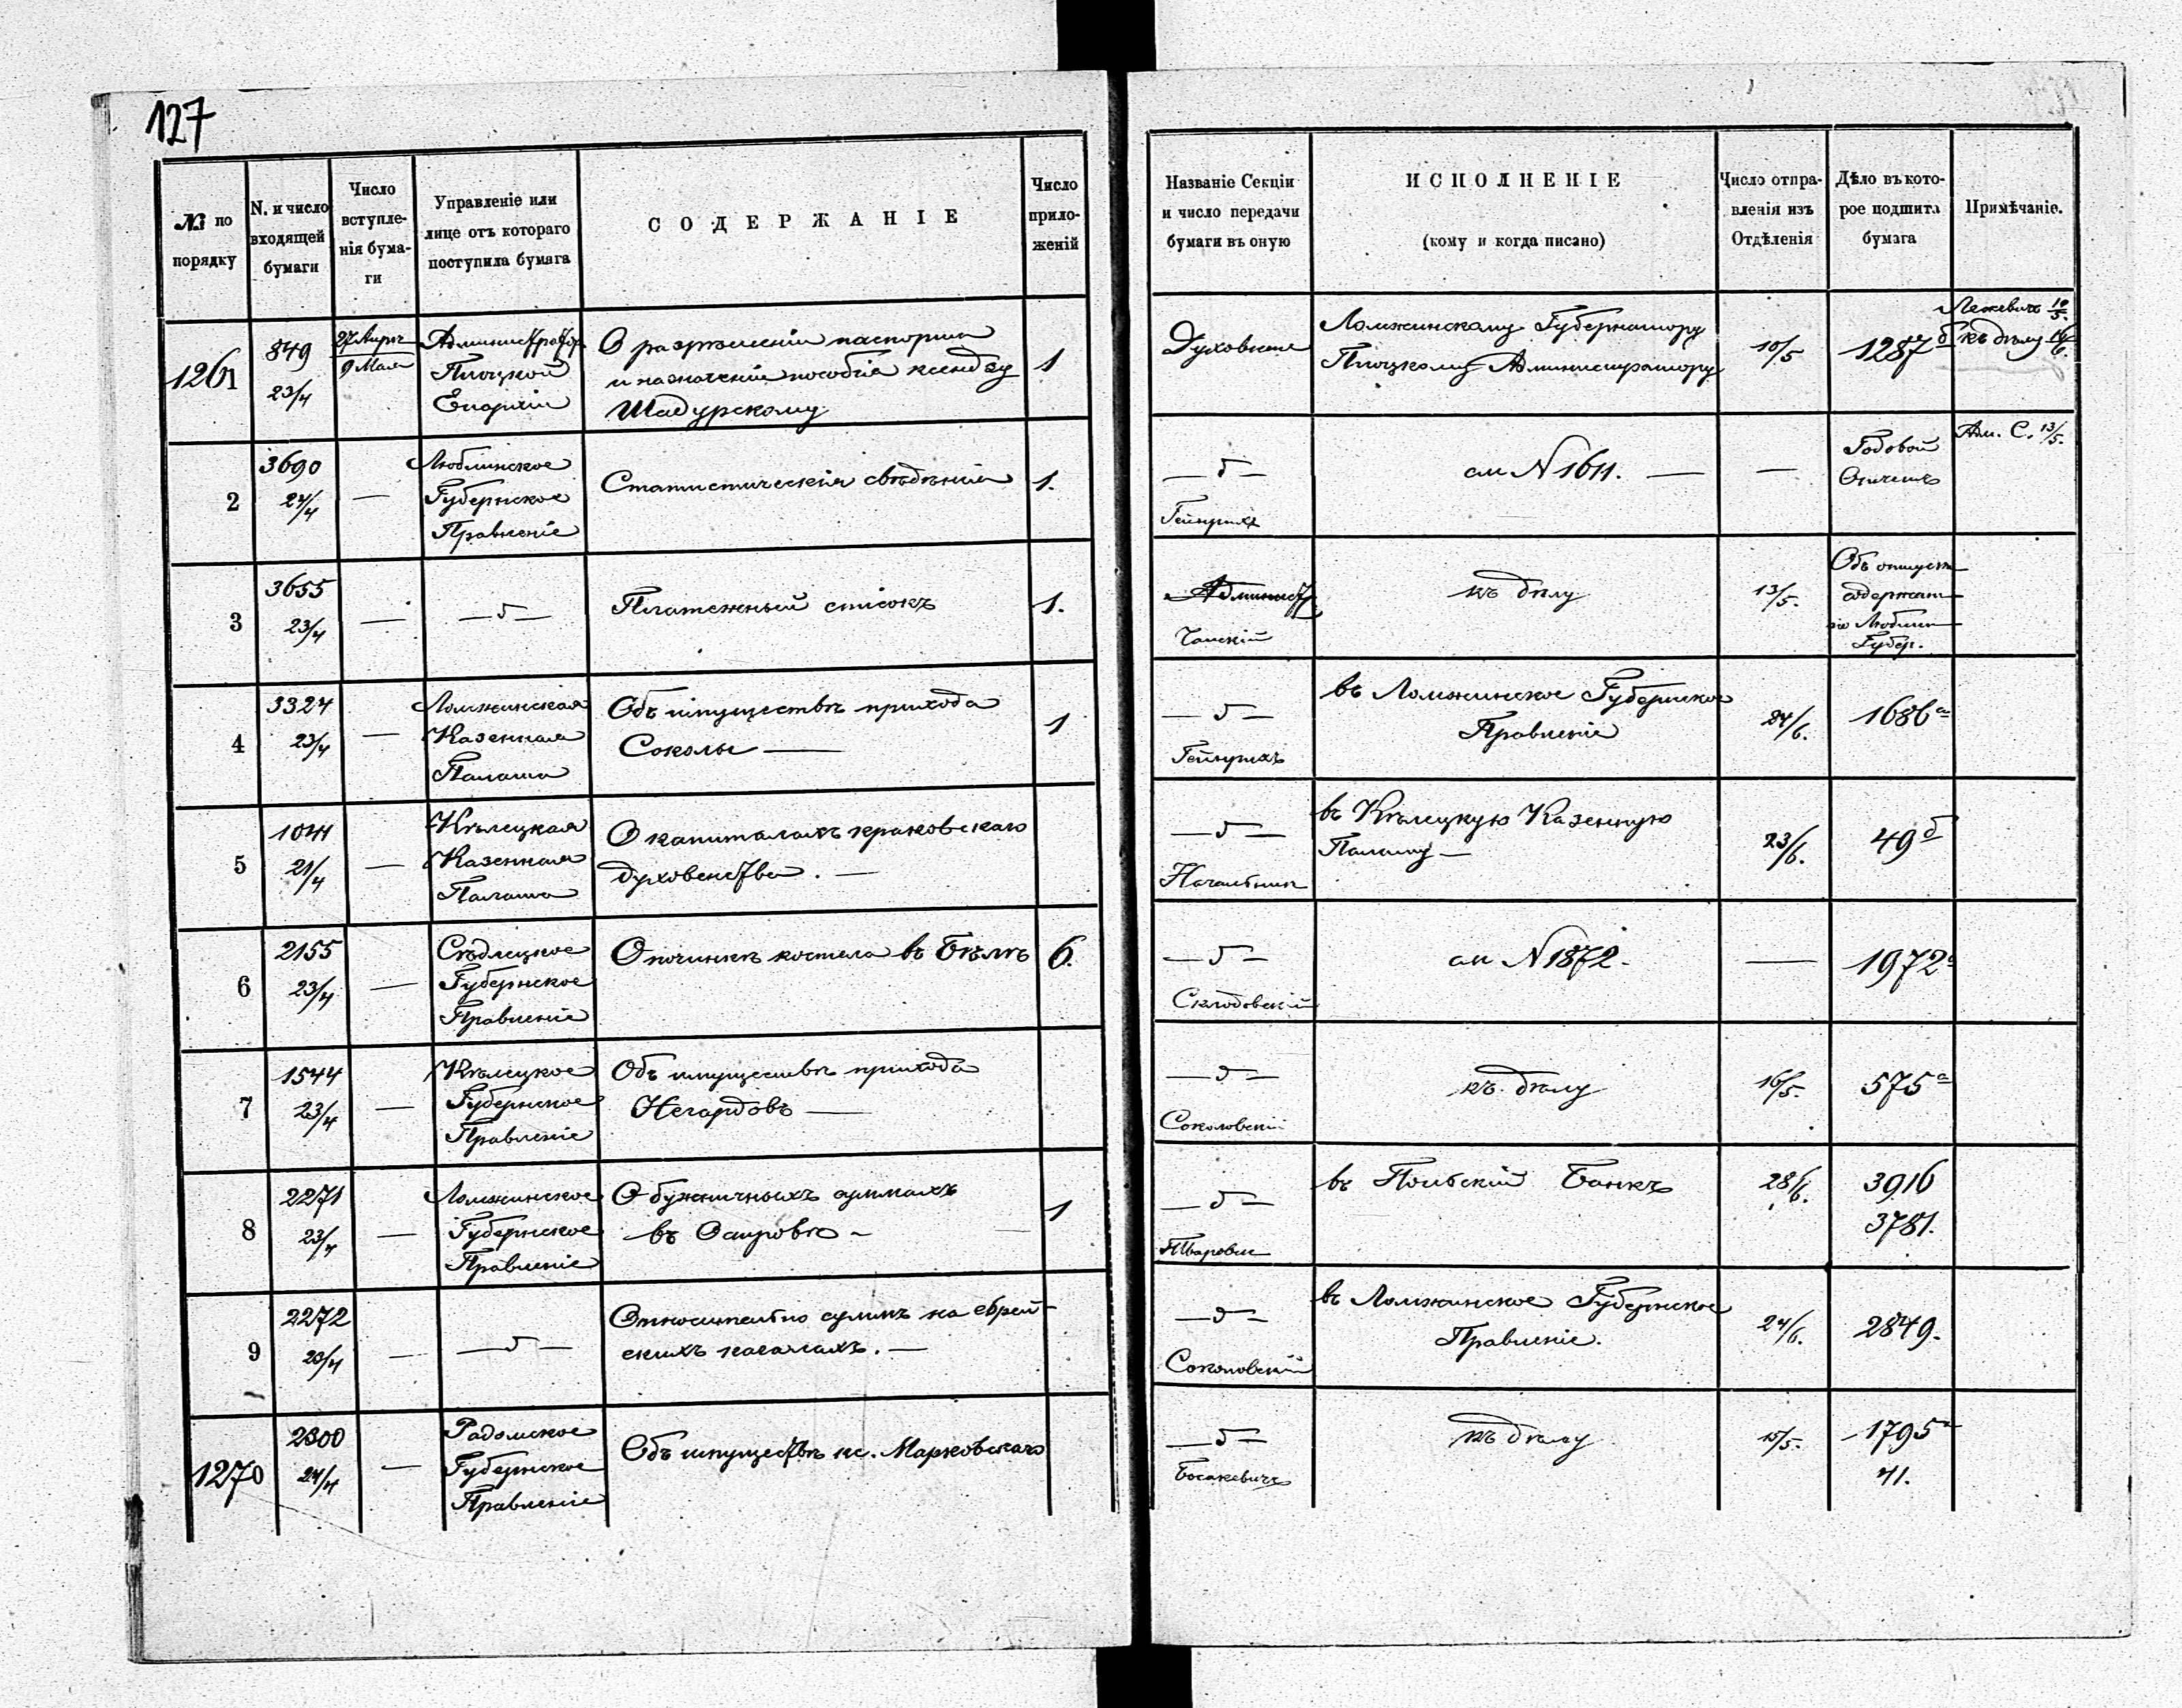 127
№ по порядку
N. и число входящей бумаги
Число вступленія бумаги
Управленіе или лице отъ котораго поступила бумага
СОДЕРЖАНІЕ
Число приложеній
Названіе Секціи и число передачи бумаги въ оную
ИСПОЛНЕНІЕ
(кому и когда писано)
Число отправленія изъ Отдѣленія
Дѣло въ которое подшита бумага
Примѣчаніе.
1261
849
23/4
27 Апр.
9 Мая
Администратор
Плоцкой
Епархіи
О разрѣшеніи паспорта
и назначеніи пособія ксендзу
Шадурскому
1
Духовная
Ломжинскому Губернатору
Плоцкому Администратору
10/5
1287 б
Лежевичъ 10/5.
къ дѣлу
2
3690
24/4
—
Люблинское
Губернское
Правленіе
Статистическія свѣдѣнія
1.
— б —
Гейнрихъ
см N 1611. —
—
Годовой
Отчетъ
Ад. С. 13/5.
3
3655
23/4
—
— б —
Платежный списокъ
1.
Чамскій
къ дѣлу
13/5.
Объ отпускѣ
содержан
ія Люблин
Губер.
4
3324
23/4
—
Ломжинская
Казенная
Палата
Объ имуществѣ прихода
Соколы —
1
— б —
Гейнрихъ
въ Ломжинское Губернское
Правленіе
24/6.
1686 а
5
1041
21/4
—
Кѣлецкая
Казенная
Палата
О капиталахъ краковскаго
духовенства. —
— б —
Начальник
въ Кѣлецкую Казенную
Палату —
23/6.
49 б
6
2155
23/4
—
Сѣдлецкое
Губернское
Правленіе
О починкѣ костела въ Бѣлѣ
6.
— б —
Склодовскій
см N 1872.
—
1972 а
7
1544
23/4
—
Кѣлецкое
Губернское
Правленіе
Объ имуществѣ прихода
Негардовъ —
— б —
Соколовскій
къ дѣлу
16/5.
575 а
8
2271
23/4
—
Ломжинское
Губернское
Правленіе
О бужничныхъ суммахъ
въ Островѣ —
1
— б —
въ Польскій Банкъ
28/6.
3916
3781.
9
2272
23/4
—
— б —
Относительно суммъ на еврей-
скихъ кагалахъ. —
— б —
Соколовскій
въ Ломжинское Губернское
Правленіе.
24/6.
2849.
1270
2300
24/4
—
Радомское
Губернское
Правленіе
Объ имуществѣ кс. Марковскаго
— б —
Босакевичъ
къ дѣлу
15/5.
1795 а
41.